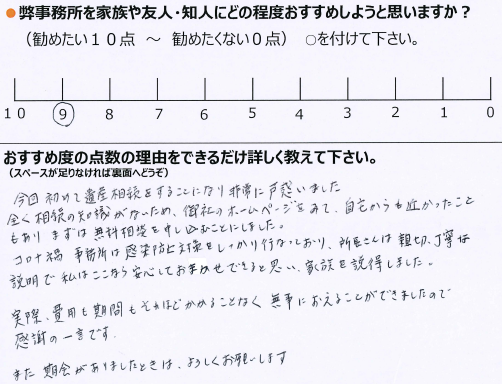 ●弊事務所を家族や友人・知人にどの程度おすすめしようと思いますか？
（勧めたい１０点　～　勧めたくない０点）　○を付けて下さい。
10 9 8 7 6 5 4 3 2 1 0
おすすめ度の点数の理由をできるだけ詳しく教えて下さい。
（スペースが足りなければ裏面へどうぞ）
今回初めて遺産相続をすることになり非常に戸惑いました
全く相続の知識がないため、御社のホームページをみて、自宅からも近かったこと
もあり まずは無料相談を申し込むことにしました。
コロナ禍 事務所は感染防止対策をしっかり行なっており、所長さんは親切、丁寧な
説明で私はここなら安心しておまかせできると思い、家族を説得しました。
実際、費用も期間もそれほどかかることなく 無事におえることができましたので
感謝の一言です.
また 機会がありましたときは、よろしくお願いします